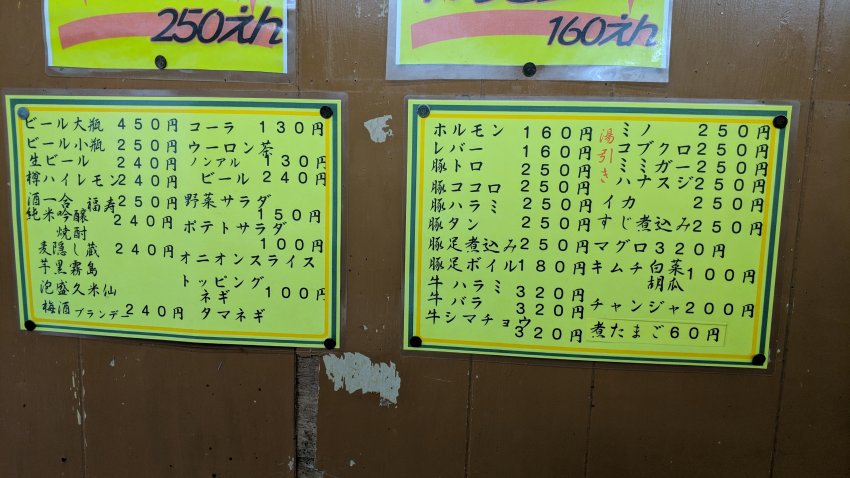 250えん
160えん
ビール大瓶 450円
ビール小瓶 250円
生ビール 240円
樽ハイレモン 240円
酒一合 福寿 250円
純米吟醸 240円
焼酎
麦隠し蔵 240円
芋黒霧島
泡盛久米仙
梅酒ブランデー 240円
コーラ 130円
ウーロン茶
130円
ノンアル
ビール 240円
野菜サラダ
150円
ポテトサラダ
100円
オニオンスライス
トッピング
ネギ 100円
タマネギ
ホルモン 160円
レバー 160円
豚トロ 250円
豚ココロ 250円
豚ハラミ 250円
豚タン 250円
豚足煮込み 250円
豚足ボイル 180円
牛ハラミ 320円
牛バラ 320円
牛シマチョウ 320円
湯引き
ミノ 250円
コブクロ 250円
ミミガー 250円
ハナスジ 250円
イカ 250円
すじ煮込み 250円
マグロ 320円
キムチ 白菜 100円
胡瓜
チャンジャ 200円
煮たまご 60円